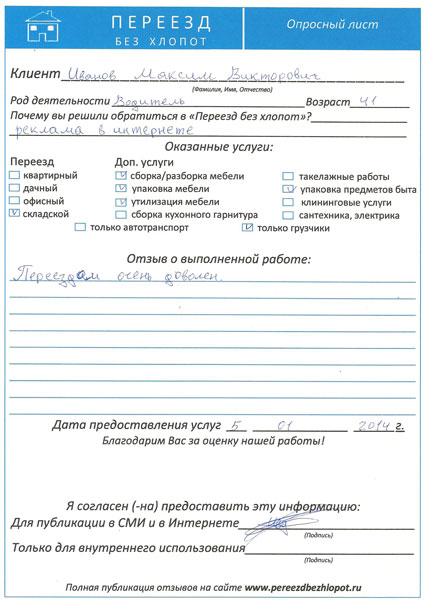 ПЕРЕЕЗД
БЕЗ ХЛОПОТ
Опросный лист
Клиент Иванов Максим Викторович
(Фамилия, Имя, Отчество)
Род деятельности Водитель Возраст 41
Почему вы решили обратиться в «Переезд без хлопот»?
реклама в интернете
Оказанные услуги:
Переезд Доп. услуги
квартирный сборка/разборка мебели такелажные работы
дачный упаковка мебели упаковка предметов быта
офисный утилизация мебели клининговые услуги
складской сборка кухонного гарнитура сантехника, электрика
только автотранспорт только грузчики
Отзыв о выполненной работе:
Переездом очень доволен.
Дата предоставления услуг 5 01 2014 г.
Благодарим Вас за оценку нашей работы!
Я согласен (-на) предоставить эту информацию:
Для публикации в СМИ и в Интернете
(Подпись)
Только для внутреннего использования
(Подпись)
Полная публикация отзывов на сайте www.pereezdbezhlopot.ru